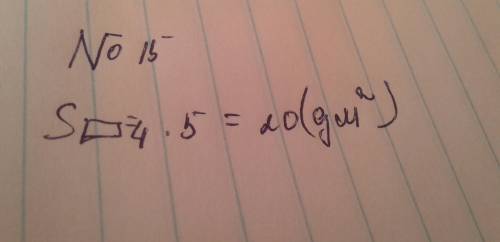 No 15
S▭=4·5=20(дм²)